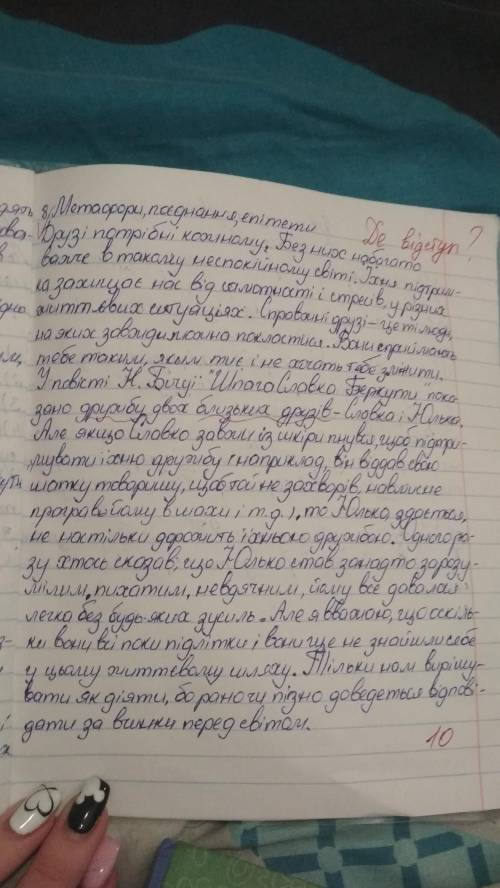 8. Метафори, поєднання, епітети
Де відступ?
Друзі потрібні кожному. Без них набагато
важче в такому неспокійному світі. Їхня підтрим-
ка захищає нас від самотності і стресів, у різних
життєвих ситуаціях. Справжні друзі – це ті люди,
на яких завжди можна покластися. Вони сприймають
тебе таким, яким ти є і не хочать тебе змінити.
У повісті Н. Бічуї "Шпага Славка Беркути" пока-
зано дружбу двох близьких друзів – Славка і Юлька.
Але якщо Славко завжди із шкіри пнувся, щоб підтри-
мувати їхню дружбу (наприклад, він віддав свою
шапку товаришу, щоб той не захворів, навмисне
програв йому в шахи і т.д.), то Юлько, здається,
не настільки дорожить їхньою дружбою. Одного ра-
зу хтось сказав, що Юлько став занадто зарозу-
мілим, пихатим, невдячним, йому все давалося
легко без будь-яких зусиль. Але я вважаю, що оскіль-
ки вони всі поки підлітки, і вони ще не знайшли себе
у цьому життєвому шляху. Тільки нам вирішу-
вати як діяти, бо рано чи пізно доведеться відпові-
дати за вчинки перед світом.
10